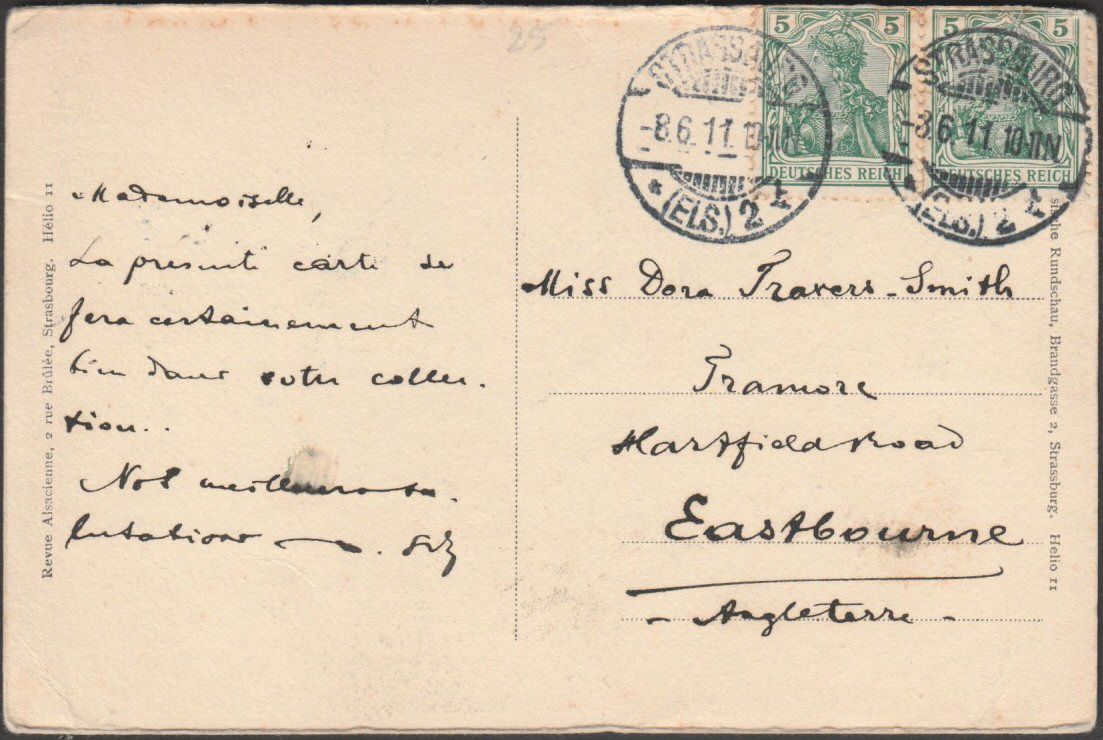 25
5 5
5 5
DEUTSCHES REICH
DEUTSCHES REICH
STRASSBURG
-8.6.11.10-11N
* (ELS.) 2 t.
STRASSBURG
-8.6.11.10-11N
* (ELS.) 2 t.
Mademoiselle,
La présente carte se
fera certainement
bien dans votre collec-
tion..
Nos meilleures sa-
lutations
Miss Dora Travers-Smith
Tramore
Hartfield Road
Eastbourne
- Angleterre -
Revue Alsacienne, 2 rue Brûlée, Strasbourg. Hélio 11
sische Rundschau, Brandgasse 2, Strassburg. Helio 11